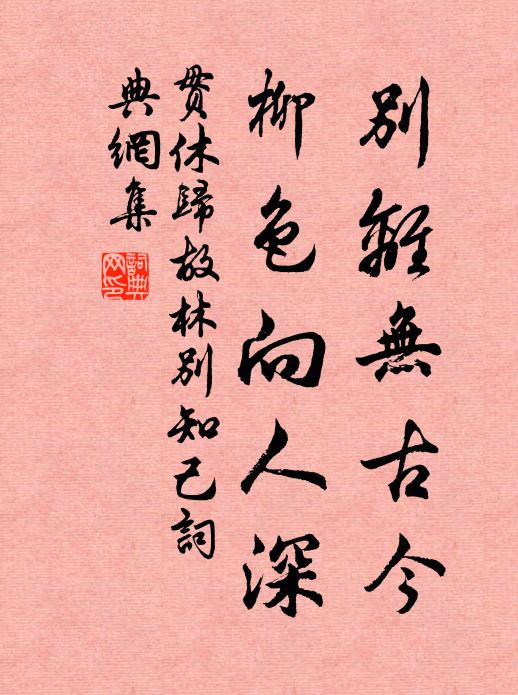 別離無古今
柳色向人深
貫休歸故林別知己詞
典網集
詞典
网印